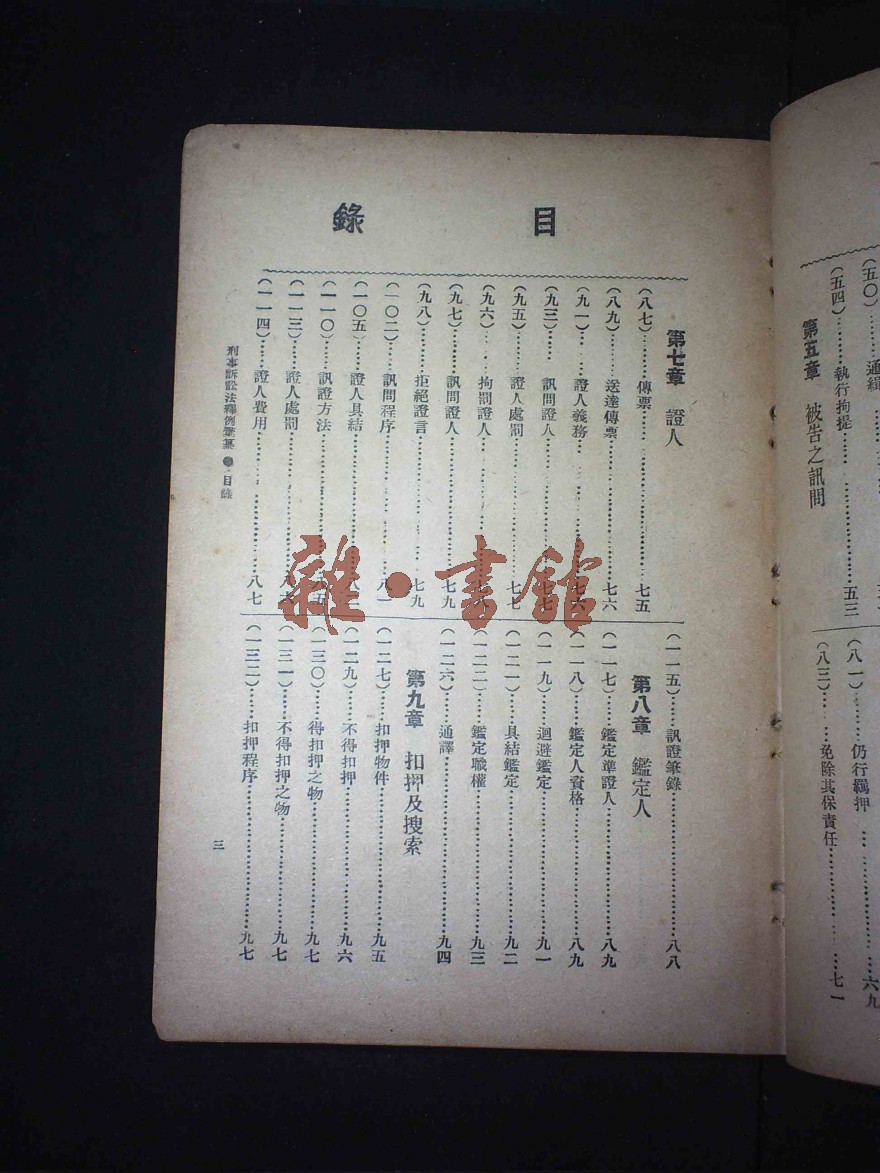 (五〇)……通緝
(五四)……執行拘提……五三
第五章 被告之訊問
(八一)……仍行羈押……六九
(八三)……免除其保責任……七一
目錄
(八七)……傳票……七五
第七章 證人
(八九)……送達傳票……七六
(九一)……證人義務……七六
(九三)……訊問證人……七七
(九五)……證人處罰……七七
(九六)……拘罰證人……七八
(九七)……訊問證人……七九
(九八)……拒絕證言……七九
(一〇二)……訊問程序……八一
(一〇五)……證人具結……八二
(一一〇)……訊證方法……八五
(一一三)……證人處罰……八六
(一一四)……證人費用……八七
(一一五)……訊證筆錄……八八
第八章 鑑定人
(一一七)……鑑定準證人……八九
(一一八)……鑑定人資格……八九
(一一九)……迴避鑑定……九一
(一二一)……具結鑑定……九二
(一二二)……鑑定職權……九三
(一二六)……通譯……九四
第九章 扣押及搜索
(一二七)……扣押物件……九五
(一二九)……不得扣押……九六
(一三〇)……得扣押之物……九七
(一三一)……不得扣押之物……九七
(一三二)……扣押程序……九七
刑事訴訟法釋例彙纂●目錄
三
雜·書館